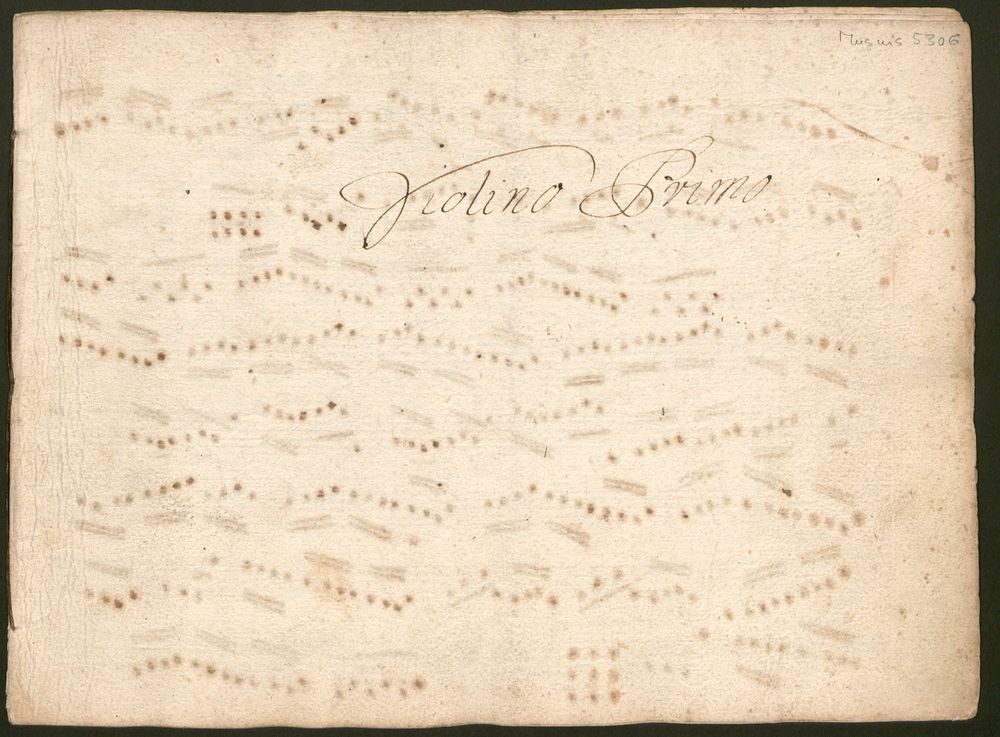 Mus ms 5306
Violino Primo